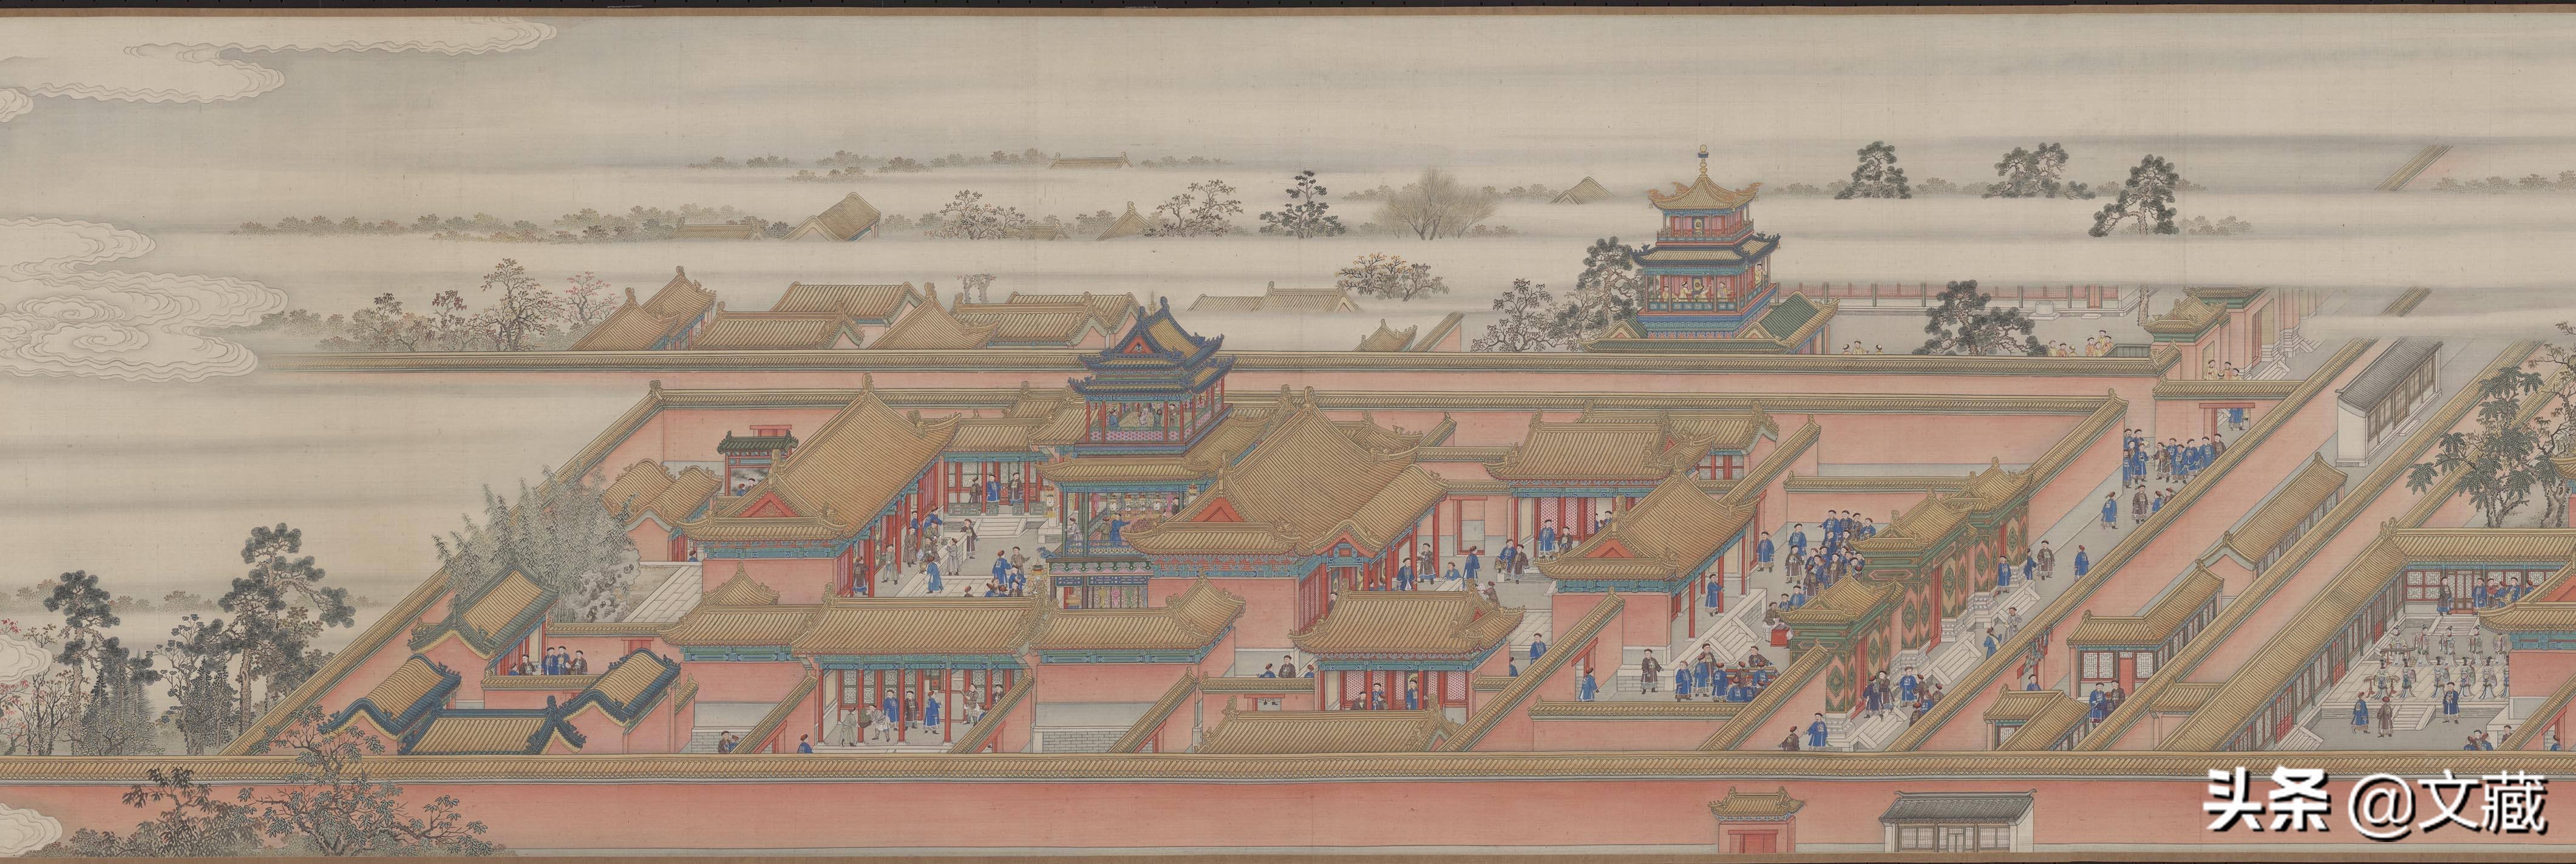 头条 @文藏